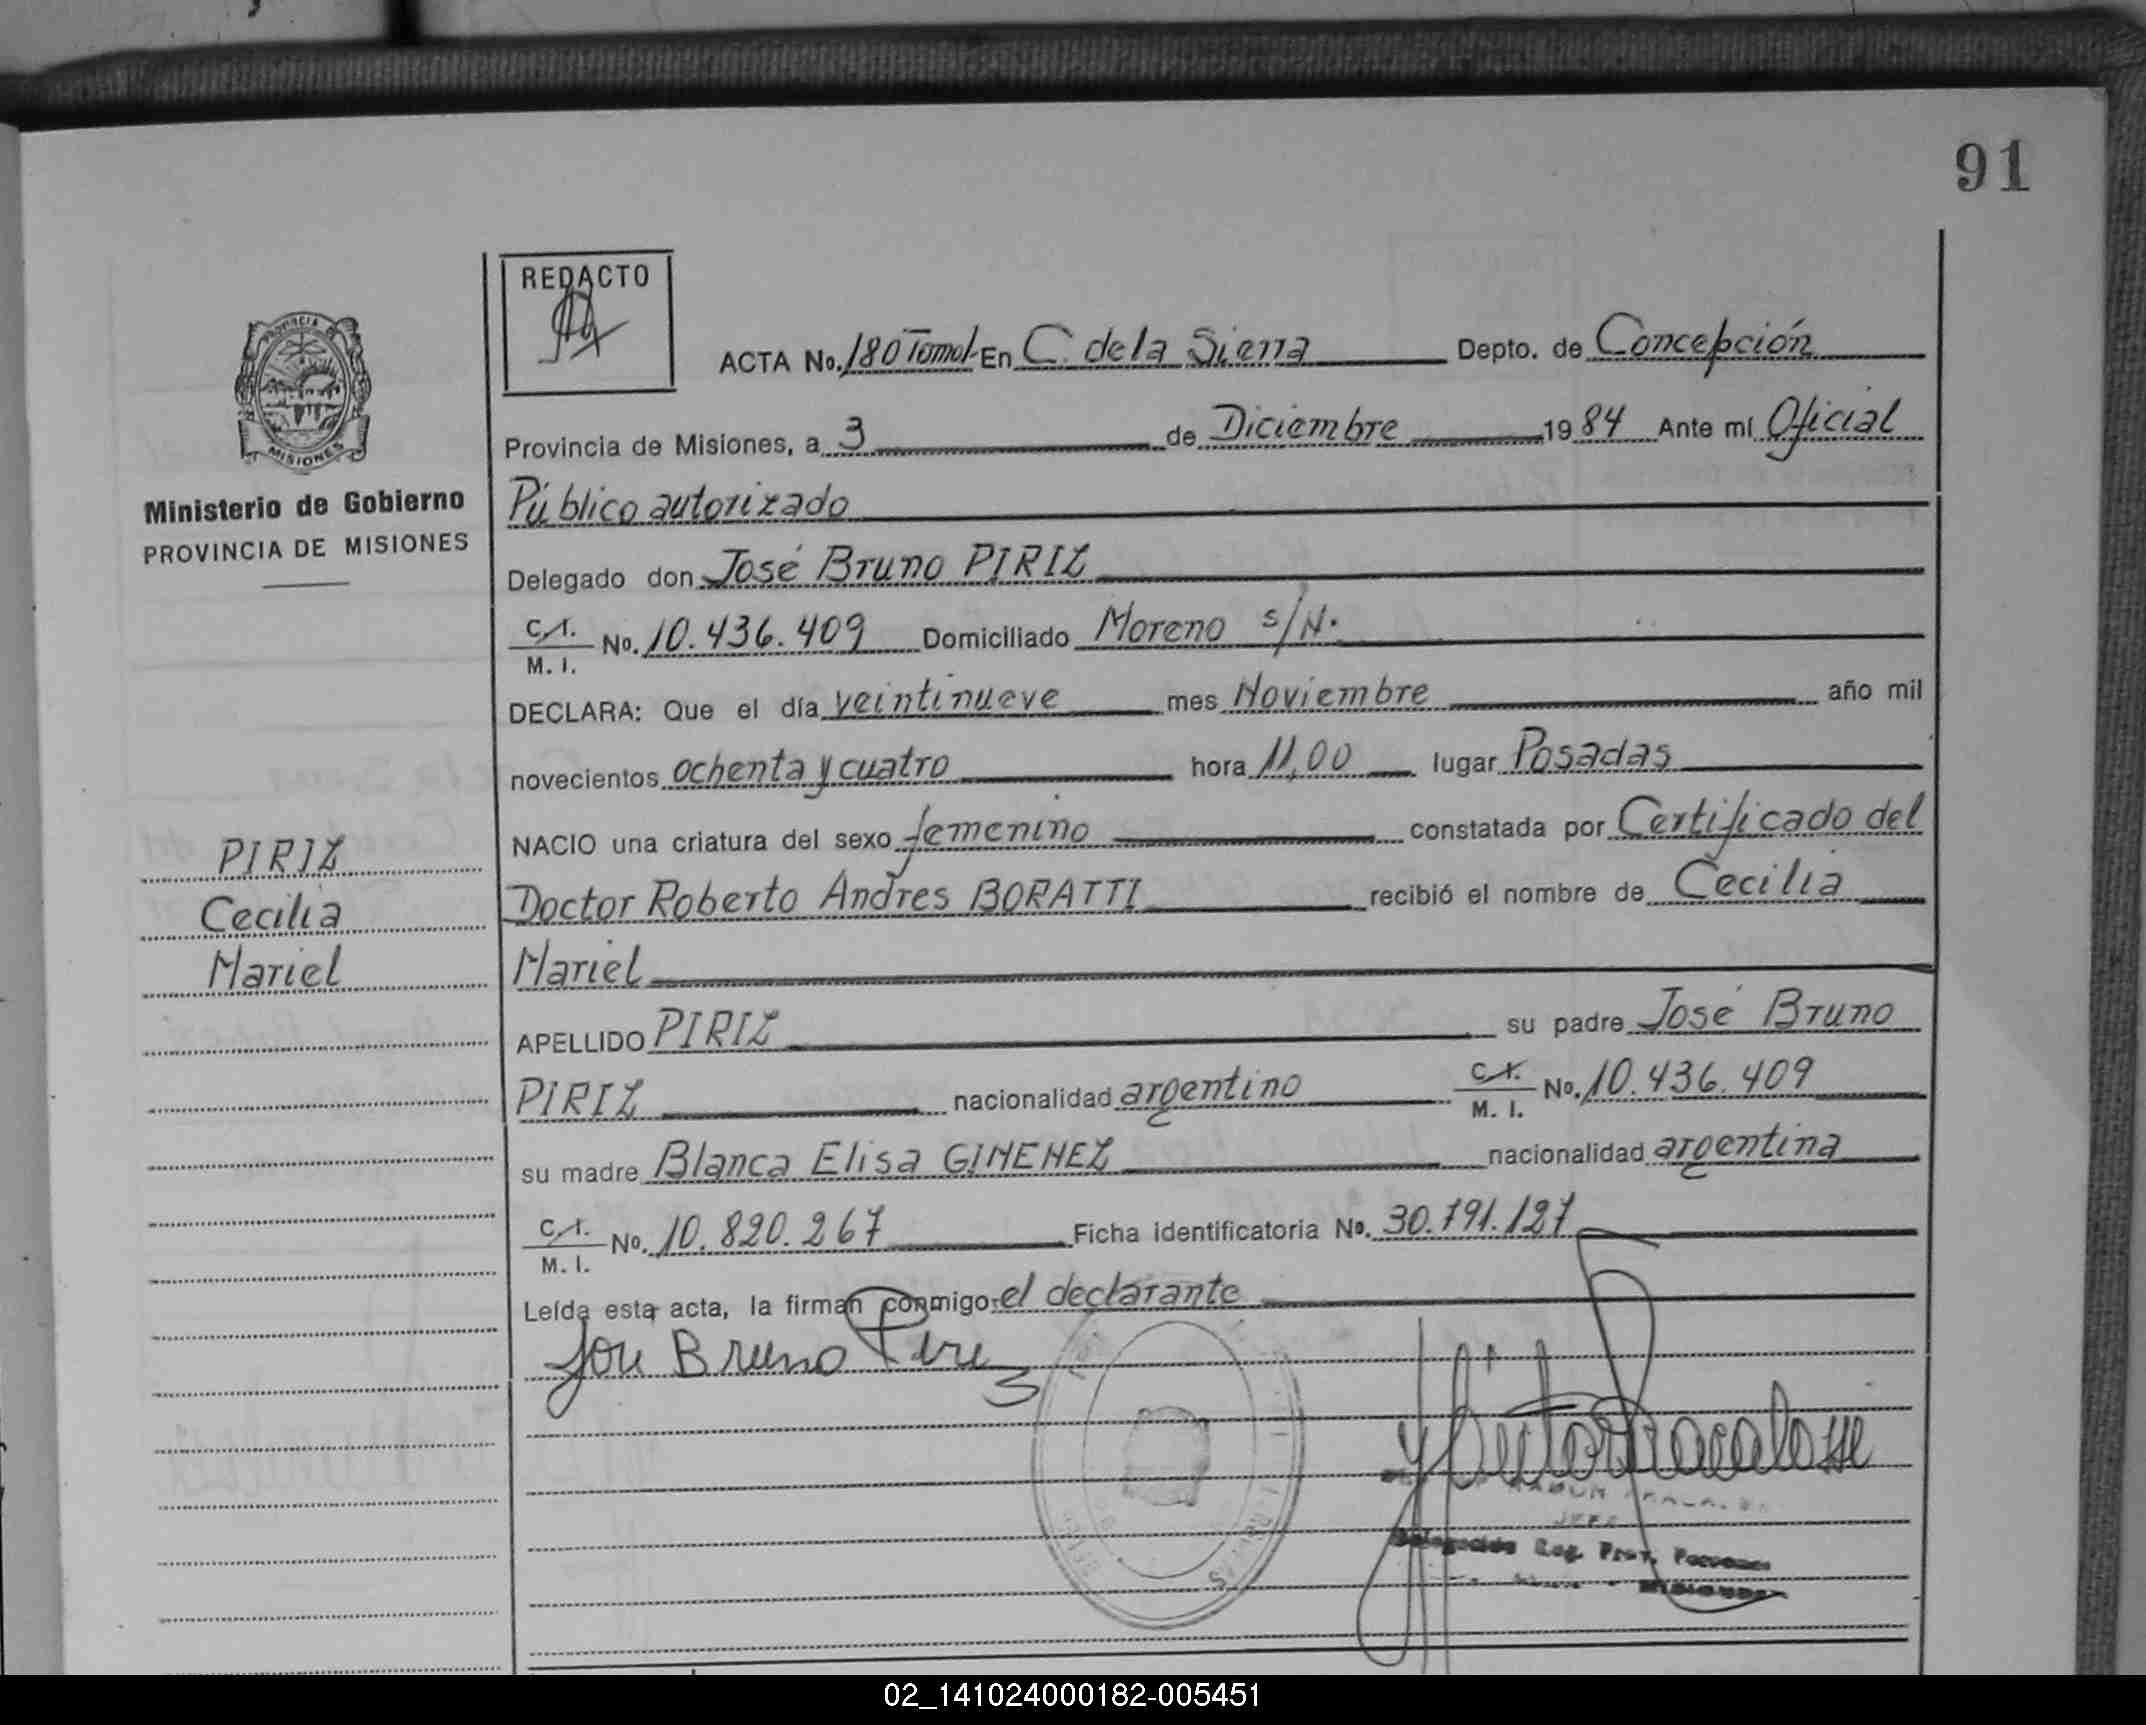 91
REDACTO
PROVINCIA
MISIONES
Ministerio de Gobierno
PROVINCIA DE MISIONES
ACTA No. 180 TomoI En C. de la Sierra Depto. de Concepción
Provincia de Misiones, a 3 de Diciembre 1984 Ante mí Oficial
Público autorizado
Delegado don José Bruno PIRIZ
C.I. M.I. No. 10.436.409 Domiciliado Moreno s/N.
DECLARA: Que el día veintinueve mes Noviembre año mil
novecientos ochenta y cuatro hora 11,00 lugar Posadas
NACIO una criatura del sexo femenino constatada por Certificado del
Doctor Roberto Andres BORATTI recibió el nombre de Cecilia
Mariel
APELLIDO PIRIZ su padre José Bruno
PIRIZ nacionalidad argentino C.I. M.I. No. 10.436.409
su madre Blanca Elisa GIMENEZ nacionalidad argentina
C.I. M.I. No. 10.820.267 Ficha identificatoria No. 30.791.127
Leída esta acta, la firman conmigo: el declarante
PIRIZ
Cecilia
Mariel
José Bruno Piriz
JEFE
Delegación Reg. Prov. Personas
MISIONES
02_141024000182-005451